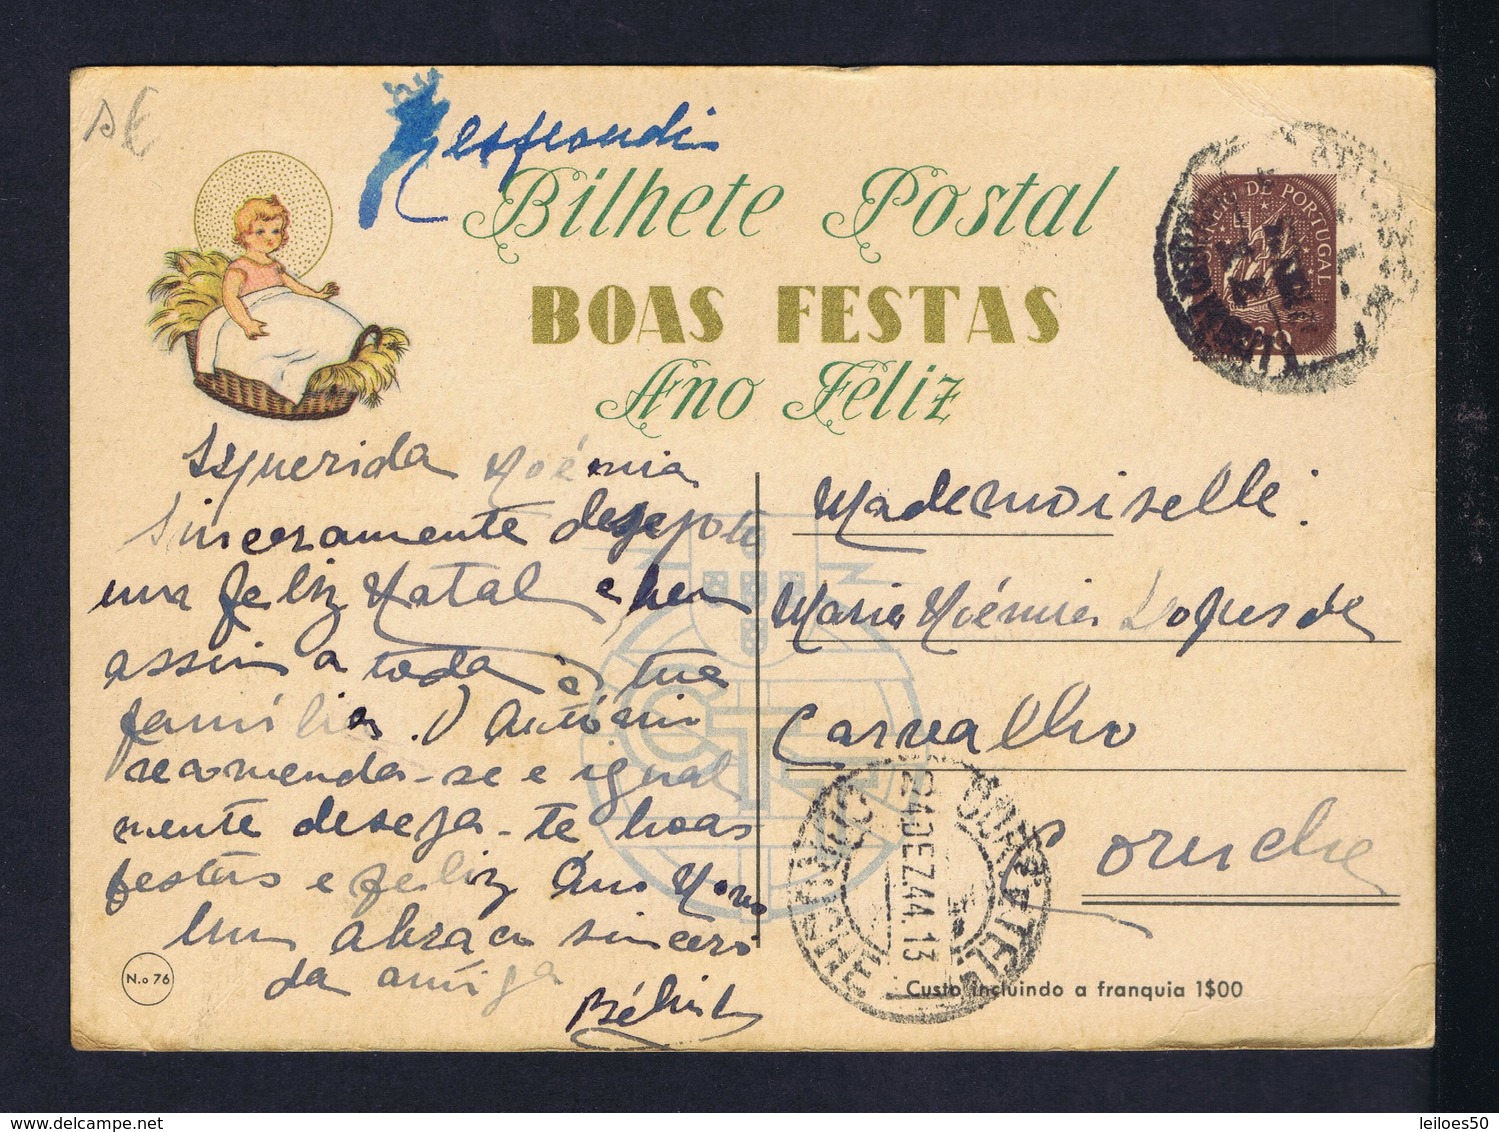 Respondi
Bilhete Postal
BOAS FESTAS
Ano Feliz
DE PORTUGAL
querida Noémia
Sinceramente desejo te
um feliz Natal e bem
assim a toda a tua
família. O António
recomenda-se e igual
mente deseja-te boas
festas e feliz Ano Novo
Um abraço sincero
da amiga
N.o 76
Mademoiselle
Maria Noémia Lopes de
Carvalho
Coruche
CTT
24.DEZ.44.13
Custo incluindo a franquia 1$00
delcampe.net
leiloes50